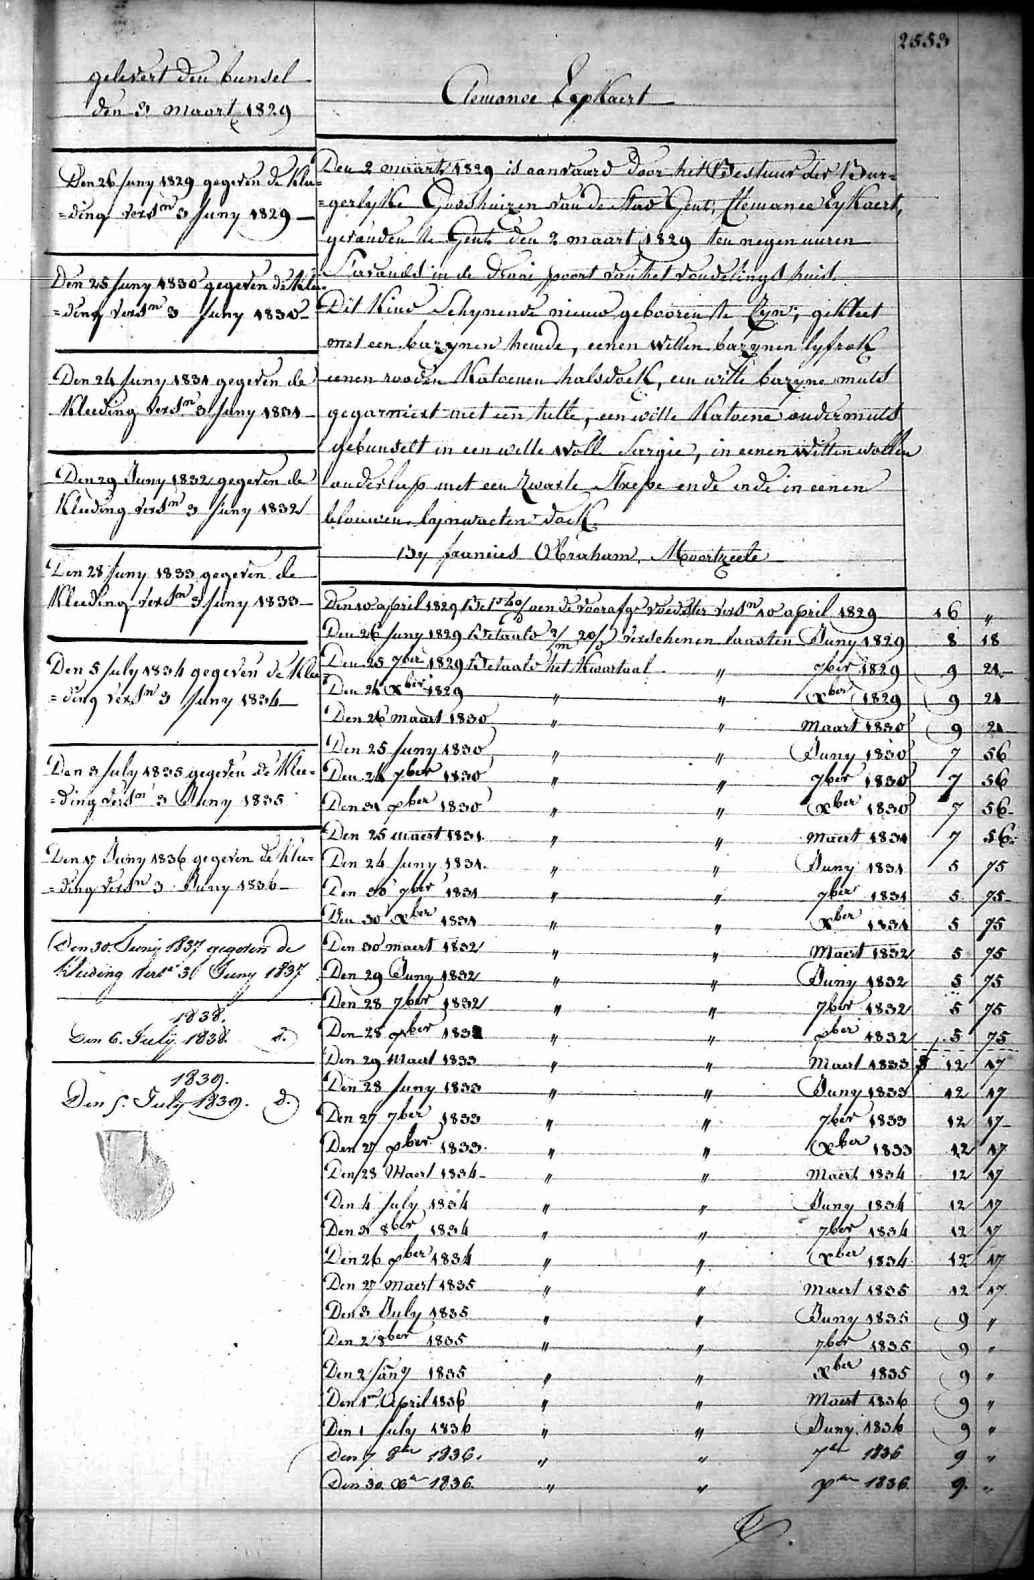 2553
gelevert den bunsel
den 3 maart 1829
Den 26 Juny 1829 gegeven de Klee=
=ding vers.^n 3 Juny 1829
Den 25 Juny 1830 gegeven de Klee=
=ding vers^n 3 Juny 1830
Den 24 Juny 1831 gegeven de
Kleeding vers^n 3 Juny 1831
Den 29 Juny 1832 gegeven de
Kleeding vers^n 3 Juny 1832
Den 28 Juny 1833 gegeven de
Kleeding vers^n 3 Juny 1833
Den 5 July 1834 gegeven de Klee
=ding vers^n 3 Juny 1834
Den 3 July 1835 gegeven de Klee=
=ding vers^n 3 Juny 1835
Den 17 Juny 1836 gegeven de klee=
=ding vers^n 3 Juny 1836
Den 30. Junij 1837 gegeven de
kleeding vers^n 3 Juny 1837
1838.
Den 6. Julij 1838. d.
1839.
Den 5. July 1839. d.
Clemance Eykaert
Den 2 maart 1829 is aanvaard door het Bestuur der Bur=
=gerlyke Godshuizen van de Stad Gent, Clemance Eykaert,
gevonden te Gent den 2 maart 1829 ten negen uuren
s'avonds in de draai poort van het vondelingshuis
Dit Kind schynende nieuw gebooren te zyn, gekleet
met een bazynen hemde, eenen witten bazynen lyfrok
eenen rooden Katoenen halsdoek, een witte bazyne muts
gegarniert met een tulle, een witte Katoene ondermuts
gebunselt in een witte wolle Sargie, in eenen witten wollen
onderlup met een zwarte Strepe ende ende in eenen
blauwen lynwaeten doek
By francies Abraham, Moortzeele
Den 10 april 1829 aen de voedster vers^n 10 april 1829 16 "
Den 26 Juny 1829 Betaald verschenen laasten Juny 1829 8 18
Den 25 7ber 1829 Betaald het Kwartaal " 7ber 1829 9 21
Den 24 Xber 1829 " " Xber 1829 9 21
Den 26 maart 1830 " " Maart 1830 9 21
Den 25 Juny 1830 " " Juny 1830 7 56
Den 24 7ber 1830 " " 7ber 1830 7 56
Den 31 Xber 1830 " " Xber 1830 7 56
Den 25 maert 1831 " " Maert 1831 7 56
Den 24 Juny 1831 " " Juny 1831 5 75
Den 30 7ber 1831 " " 7ber 1831 5 75
Den 30 Xber 1831 " " Xber 1831 5 75
Den 30 maert 1832 " " Maert 1832 5 75
Den 29 Juny 1832 " " Juny 1832 5 75
Den 28 7ber 1832 " " 7ber 1832 5 75
Den 28 Xber 1832 " " Xber 1832 5 75
Den 29 Maert 1833 " " Maert 1833 12 17
Den 28 Juny 1833 " " Juny 1833 12 17
Den 27 7ber 1833 " " 7ber 1833 12 17
Den 27 Xber 1833 " " Xber 1833 12 17
Den 28 Maert 1834 " " Maert 1834 12 17
Den 4 July 1834 " " Juny 1834 12 17
Den 3 8ber 1834 " " 7ber 1834 12 17
Den 26 Xber 1834 " " Xber 1834 12 17
Den 27 Maert 1835 " " Maert 1835 12 17
Den 3 July 1835 " " Juny 1835 9 "
Den 2 8ber 1835 " " 7ber 1835 9 "
Den 2 Jany 1835 " " Xber 1835 9 "
Den 1^er April 1836 " " Maert 1836 9 "
Den 1 July 1836 " " Juny 1836 9 "
Den 7 8ber 1836. " " 7ber 1836 9 "
Den 30. Xber 1836. " " Xber 1836 9. "